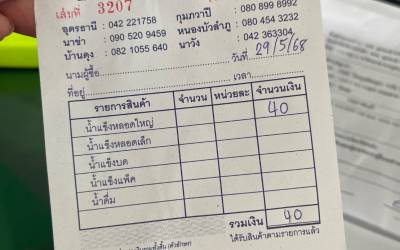 เล่มที่ 3207
อุดรธานี : 042 221758 กุมภวาปี : 080 899 8992
นาข่า : 090 520 9459 หนองบัวลำภู : 080 454 3232
บ้านดุง : 082 1055 640 นาวัง : 042 363304
วันที่ 29/5/68
นามผู้ซื้อ
ที่อยู่ เวลา
รายการสินค้า จำนวน หน่วยละ จำนวนเงิน
น้ำแข็งหลอดใหญ่ 40
น้ำแข็งหลอดเล็ก
น้ำแข็งบด
น้ำแข็งแพ็ค
น้ำดื่ม
รวมเงิน 40
(ตัวอักษร) ได้รับสินค้าตามรายการแล้ว